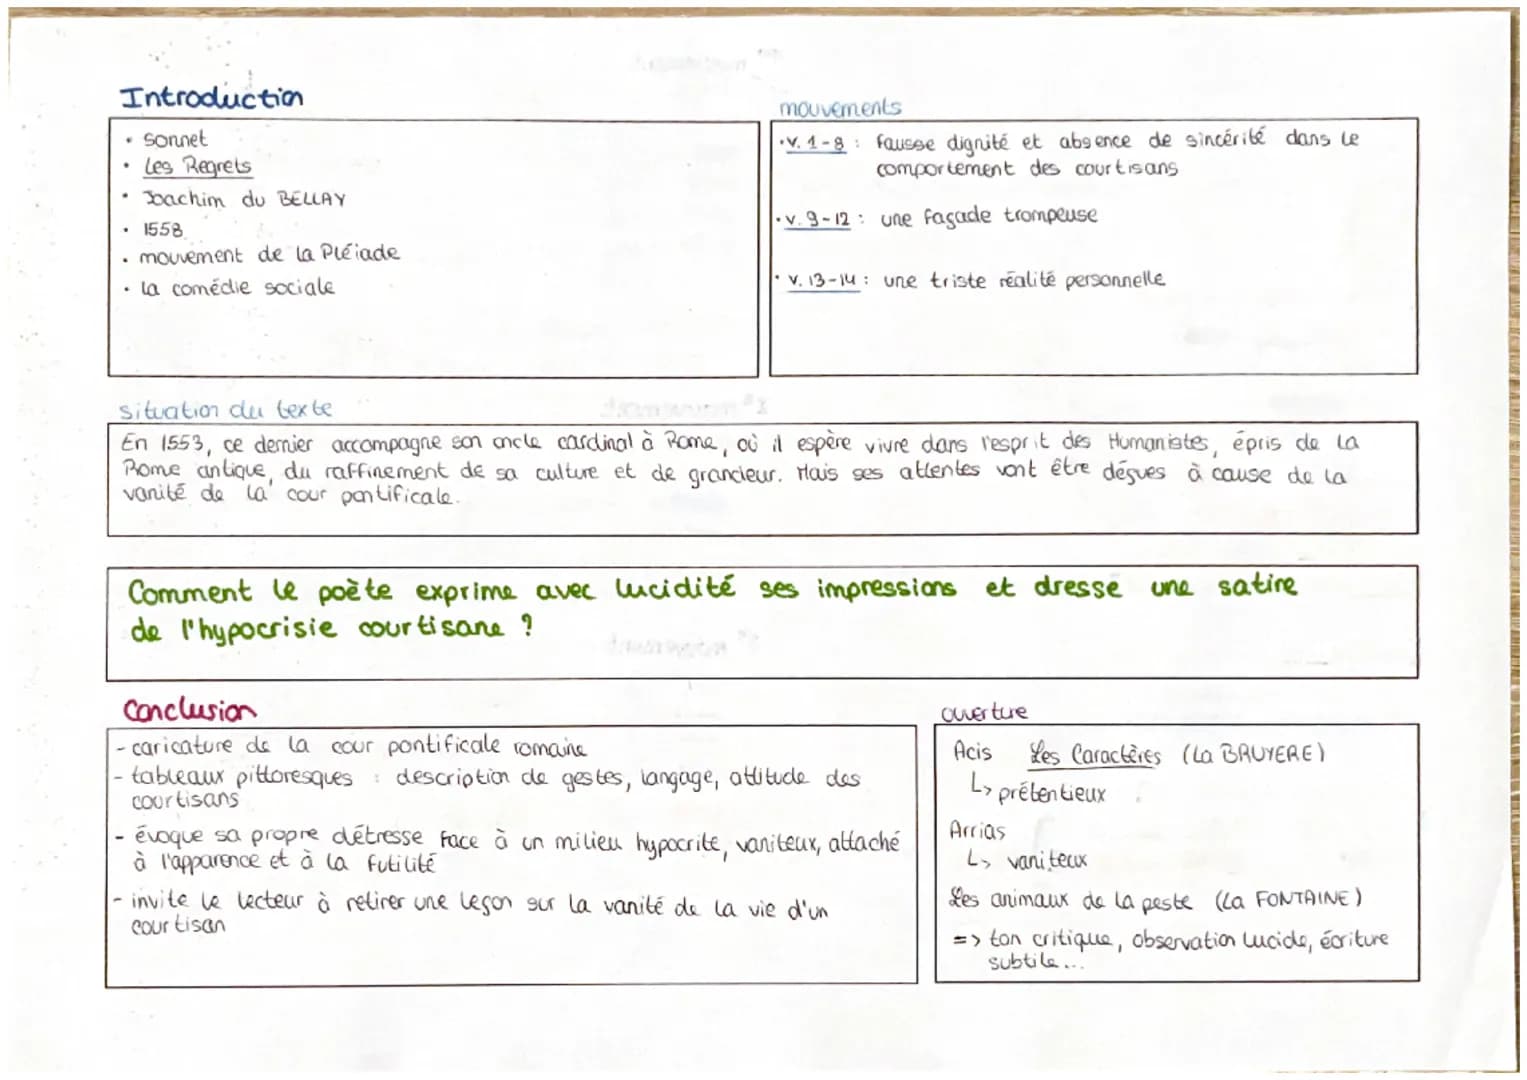 Introduction
• sonnet
• Les Regrets
• Joachim du BELLAY
• 1558
• mouvement de la Pléiade
• la comédie sociale
mouvements
• v. 1-8 : fausse dignité et absence de sincérité dans le
comportement des courtisans
• v. 9-12 : une façade trompeuse
• v. 13-14 : une triste réalité personnelle
situation du texte
En 1553, ce dernier accompagne son oncle cardinal à Rome, où il espère vivre dans l'esprit des Humanistes, épris de la
Rome antique, du raffinement de sa culture et de grandeur. Mais ses attentes vont être déçues à cause de la
vanité de la cour pontificale.
Comment le poète exprime avec lucidité ses impressions et dresse une satire
de l'hypocrisie courtisane ?
Conclusion
- caricature de la cour pontificale romaine
- tableaux pittoresques : description de gestes, langage, attitude des
courtisans
- évoque sa propre détresse face à un milieu hypocrite, vaniteux, attaché
à l'apparence et à la futilité
- invite le lecteur à retirer une leçon sur la vanité de la vie d'un
courtisan
ouverture
Acis Les Caractères (La BRUYERE)
↳ prétentieux
Arrias
↳ vaniteux
Les animaux de la peste (La FONTAINE)
=> ton critique, observation lucide, écriture
subtile...